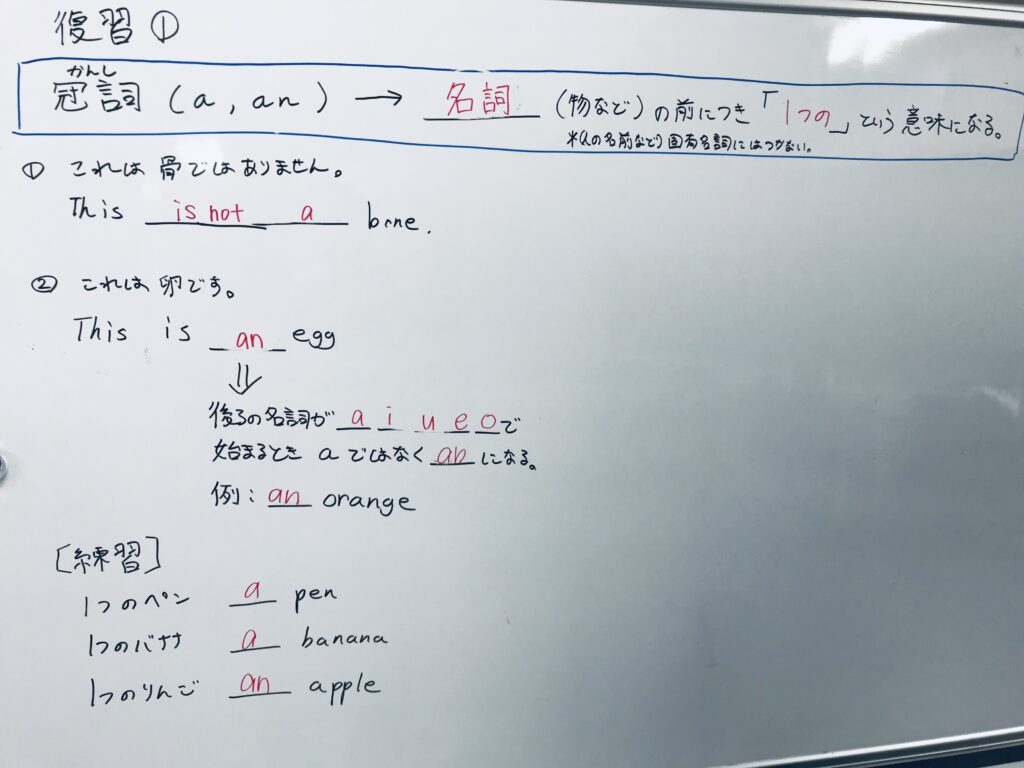 復習①
かんし
冠詞 (a, an) → 名詞 (物など)の前につき「1つの」という意味になる。
*(人の名前など)固有名詞にはつかない。
① これは骨ではありません。
This is not a bone.
② これは卵です。
This is an egg
⇓
後ろの名詞が a i u e oで
始まるとき aではなく anになる。
例: an orange
[練習]
1つのペン a pen
1つのバナナ a banana
1つのりんご an apple